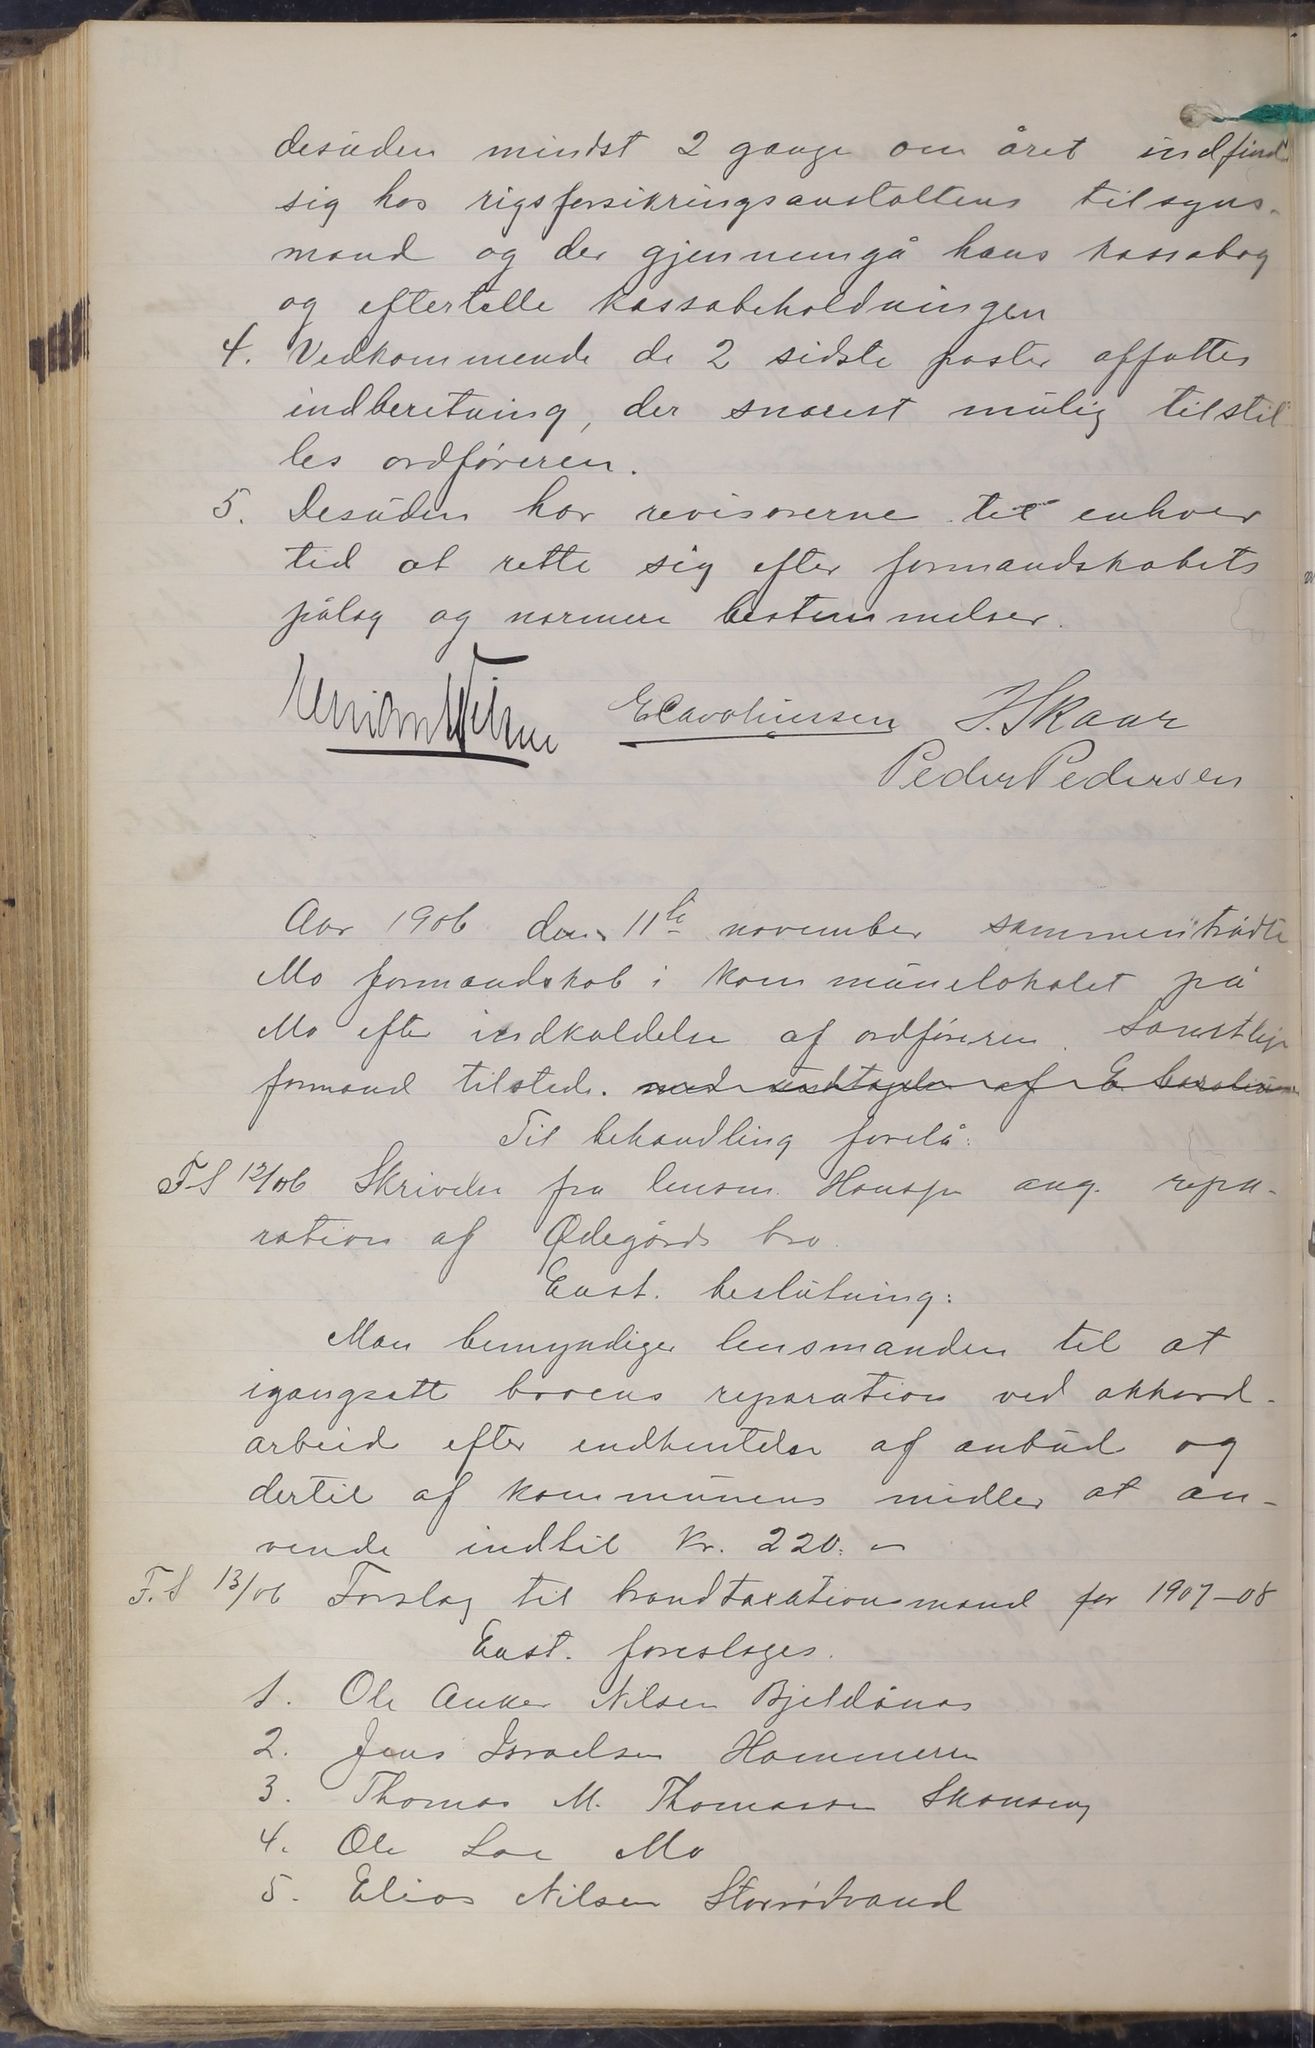 desuden mindst 2 gange om året indfind
sig hos rigsforsikringsanstaltens tilsyns-
mand og der gjennemgå hans kassabog
og eftertelle kassabeholdningen
4. Vedkommende de 2 sidste poster affattes
indberetning, der snarest mulig tilstil
les ordføreren.
5. Desuden har revisorerne til enhver
tid at rette sig efter formandskabets
pålæg og nærmere bestemmelser.
E Carolinssen J. Skaar
Peder Pedersen
Aar 1906 den 11te november sammentrådte
Mo formandskab i kommunelokalet på
Mo efter indkaldelse af ordføreren. Samtlige
formænd tilstede. med undtagelse af E Carolin
Til behandling forelå:
FS 12/06 Skrivelse fra lensm. Hansen ang. repa-
ration af Ødegårds bro.
Enst. beslutning:
Man bemyndiger lensmanden til at
igangsætte broens reparation ved akkord-
arbeid efter indhentelse af anbud og
dertil af kommunens midler at an-
vende indtil kr. 220.-
F.S 13/06 Forslag til brandtaxationsmænd for 1907-08
Enst. foreslages.
1. Ole Anker Nilsen Bjeldånes
2. Jens Israelsen Hammeren
3. Thomas M. Thomassen Skonseng
4. Ole Mo
5. Elias Nilsen Storrødvand